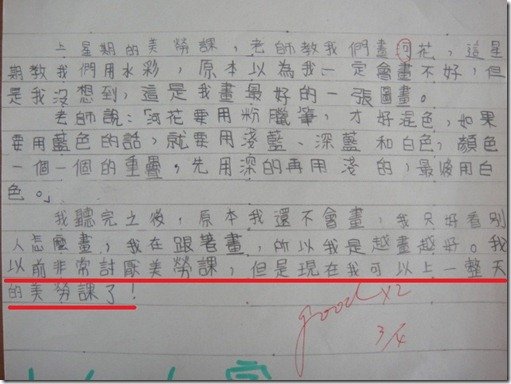 上星期的美勞課，老師教我們畫河花，這星
期教我們用水彩，原本以為我一定會畫不好，但
是我沒想到，這是我畫最好的一張圖畫。
老師說：「河花要用粉臘筆，才好混色，如果
要用藍色的話，就要用淺藍、深藍和白色，顏色
一個一個的重疊，先用深的再用淺的，最後用白
色。」
我聽完之後，原本我還不會畫，我只好看別
人怎麼畫，我在跟著畫，所以我是越畫越好。我
以前非常討厭美勞課，但是現在我可以上一整天
的美勞課了！
good x2
3/4